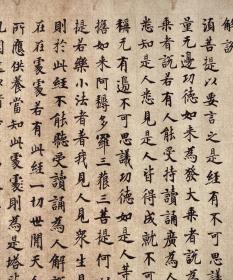 解說
湏菩提以要言之是經有不可思
量无邊功德如來為發大乘者說
乘者說若有人能受持讀誦廣為
知是人悉見是人皆得成就不可
稱无有邊不可思議功德如是人
擔如來阿耨多羅三藐三菩提何以
提若樂小法者著我見人見眾生見
則於此經不能聽受讀誦為人解
在在處處若有此經一切世閒天人
所應供養當知此處則為是塔